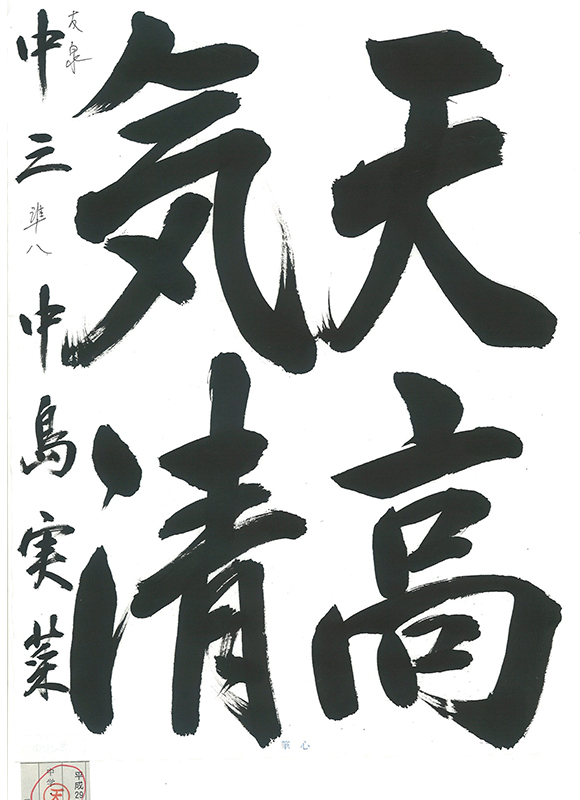 天高
気清
中三 準八 中島実菜
友泉
心筆
平成29
中学
天